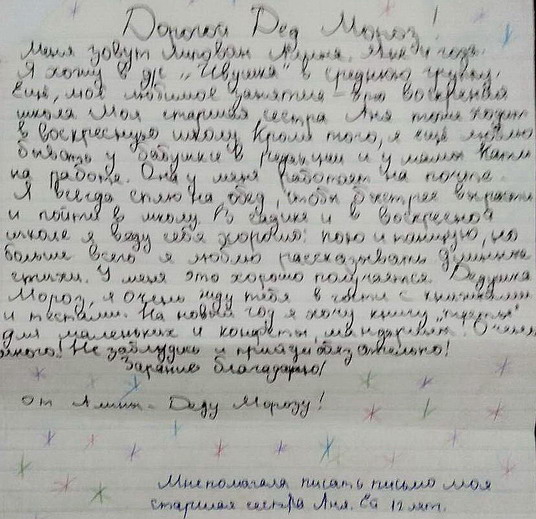 Дорогой Дед Мороз!
Меня зовут Алина. Мне 4 года.
Я хожу в д/с „Ивушка" в среднюю группу.
Ещё, моё любимое занятие – это воскресная
школа. Моя старшая сестра Аня тоже ходит
в воскресную школу. Кроме того, я ещё люблю
бывать у бабушки в редакции и у мамы Кати
на работе. Она у меня работает на почте.
Я всегда сплю на обед, чтобы быстрее вырасти
и пойти в школу. В садике и в воскресной
школе я веду себя хорошо: пою и танцую, но
больше всего я люблю рассказывать длинные
стихи. У меня это хорошо получается. Дедушка
Мороз, я очень жду тебя в гости с книжками
и тестами. На новый год я хочу книгу
для маленьких и конфеты, мандарины! Очень
много. Не заблудись и приходи обязательно!
Зарание благодарю!
От Алины – Деду Морозу!
Мне помогала писать письмо моя
старшая сестра Аня. Ей 12 лет.